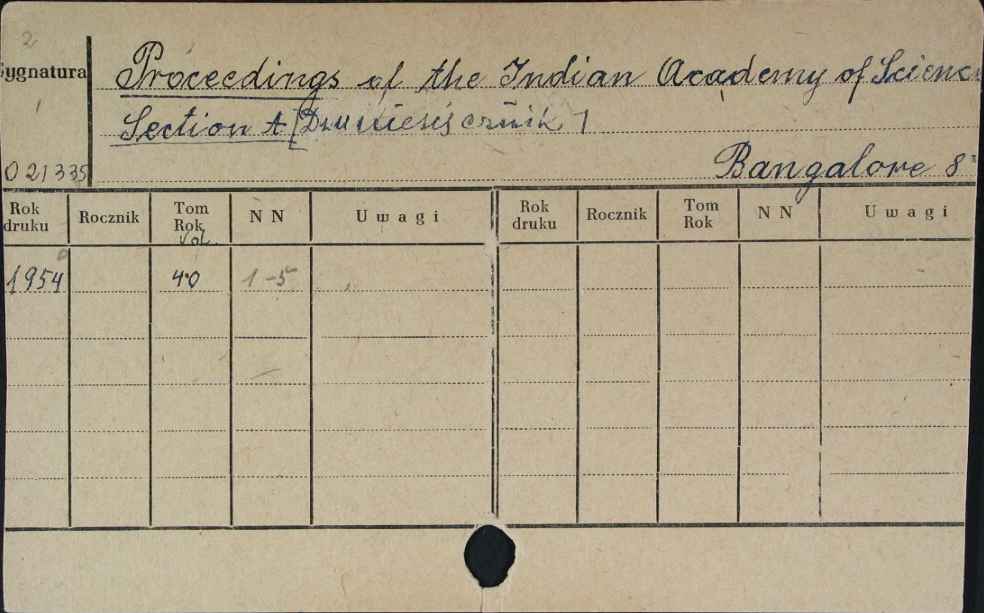 2
Sygnatura
Proceedings of the Indian Academy of Scienc
Section A [Dwumiesięcznik]
021335
Bangalore 8°
Rok druku Rocznik Tom Rok Vol. NN Uwagi Rok druku Rocznik Tom Rok NN Uwagi
1954 40 1-5